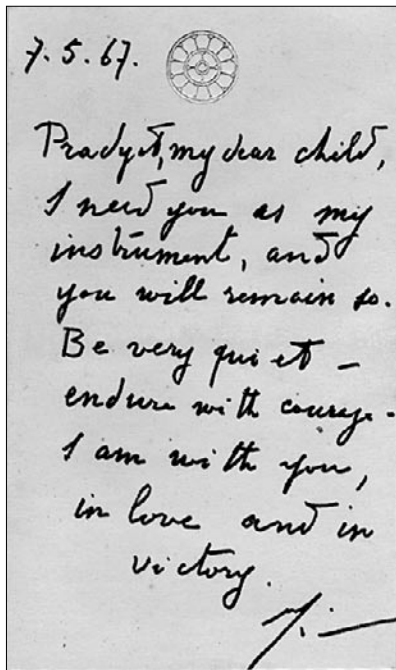 7.5.67.
Pradyot, my dear child,
I need you as my
instrument, and
you will remain so.
Be very quiet –
endure with courage -
I am with you,
in love and in
victory.